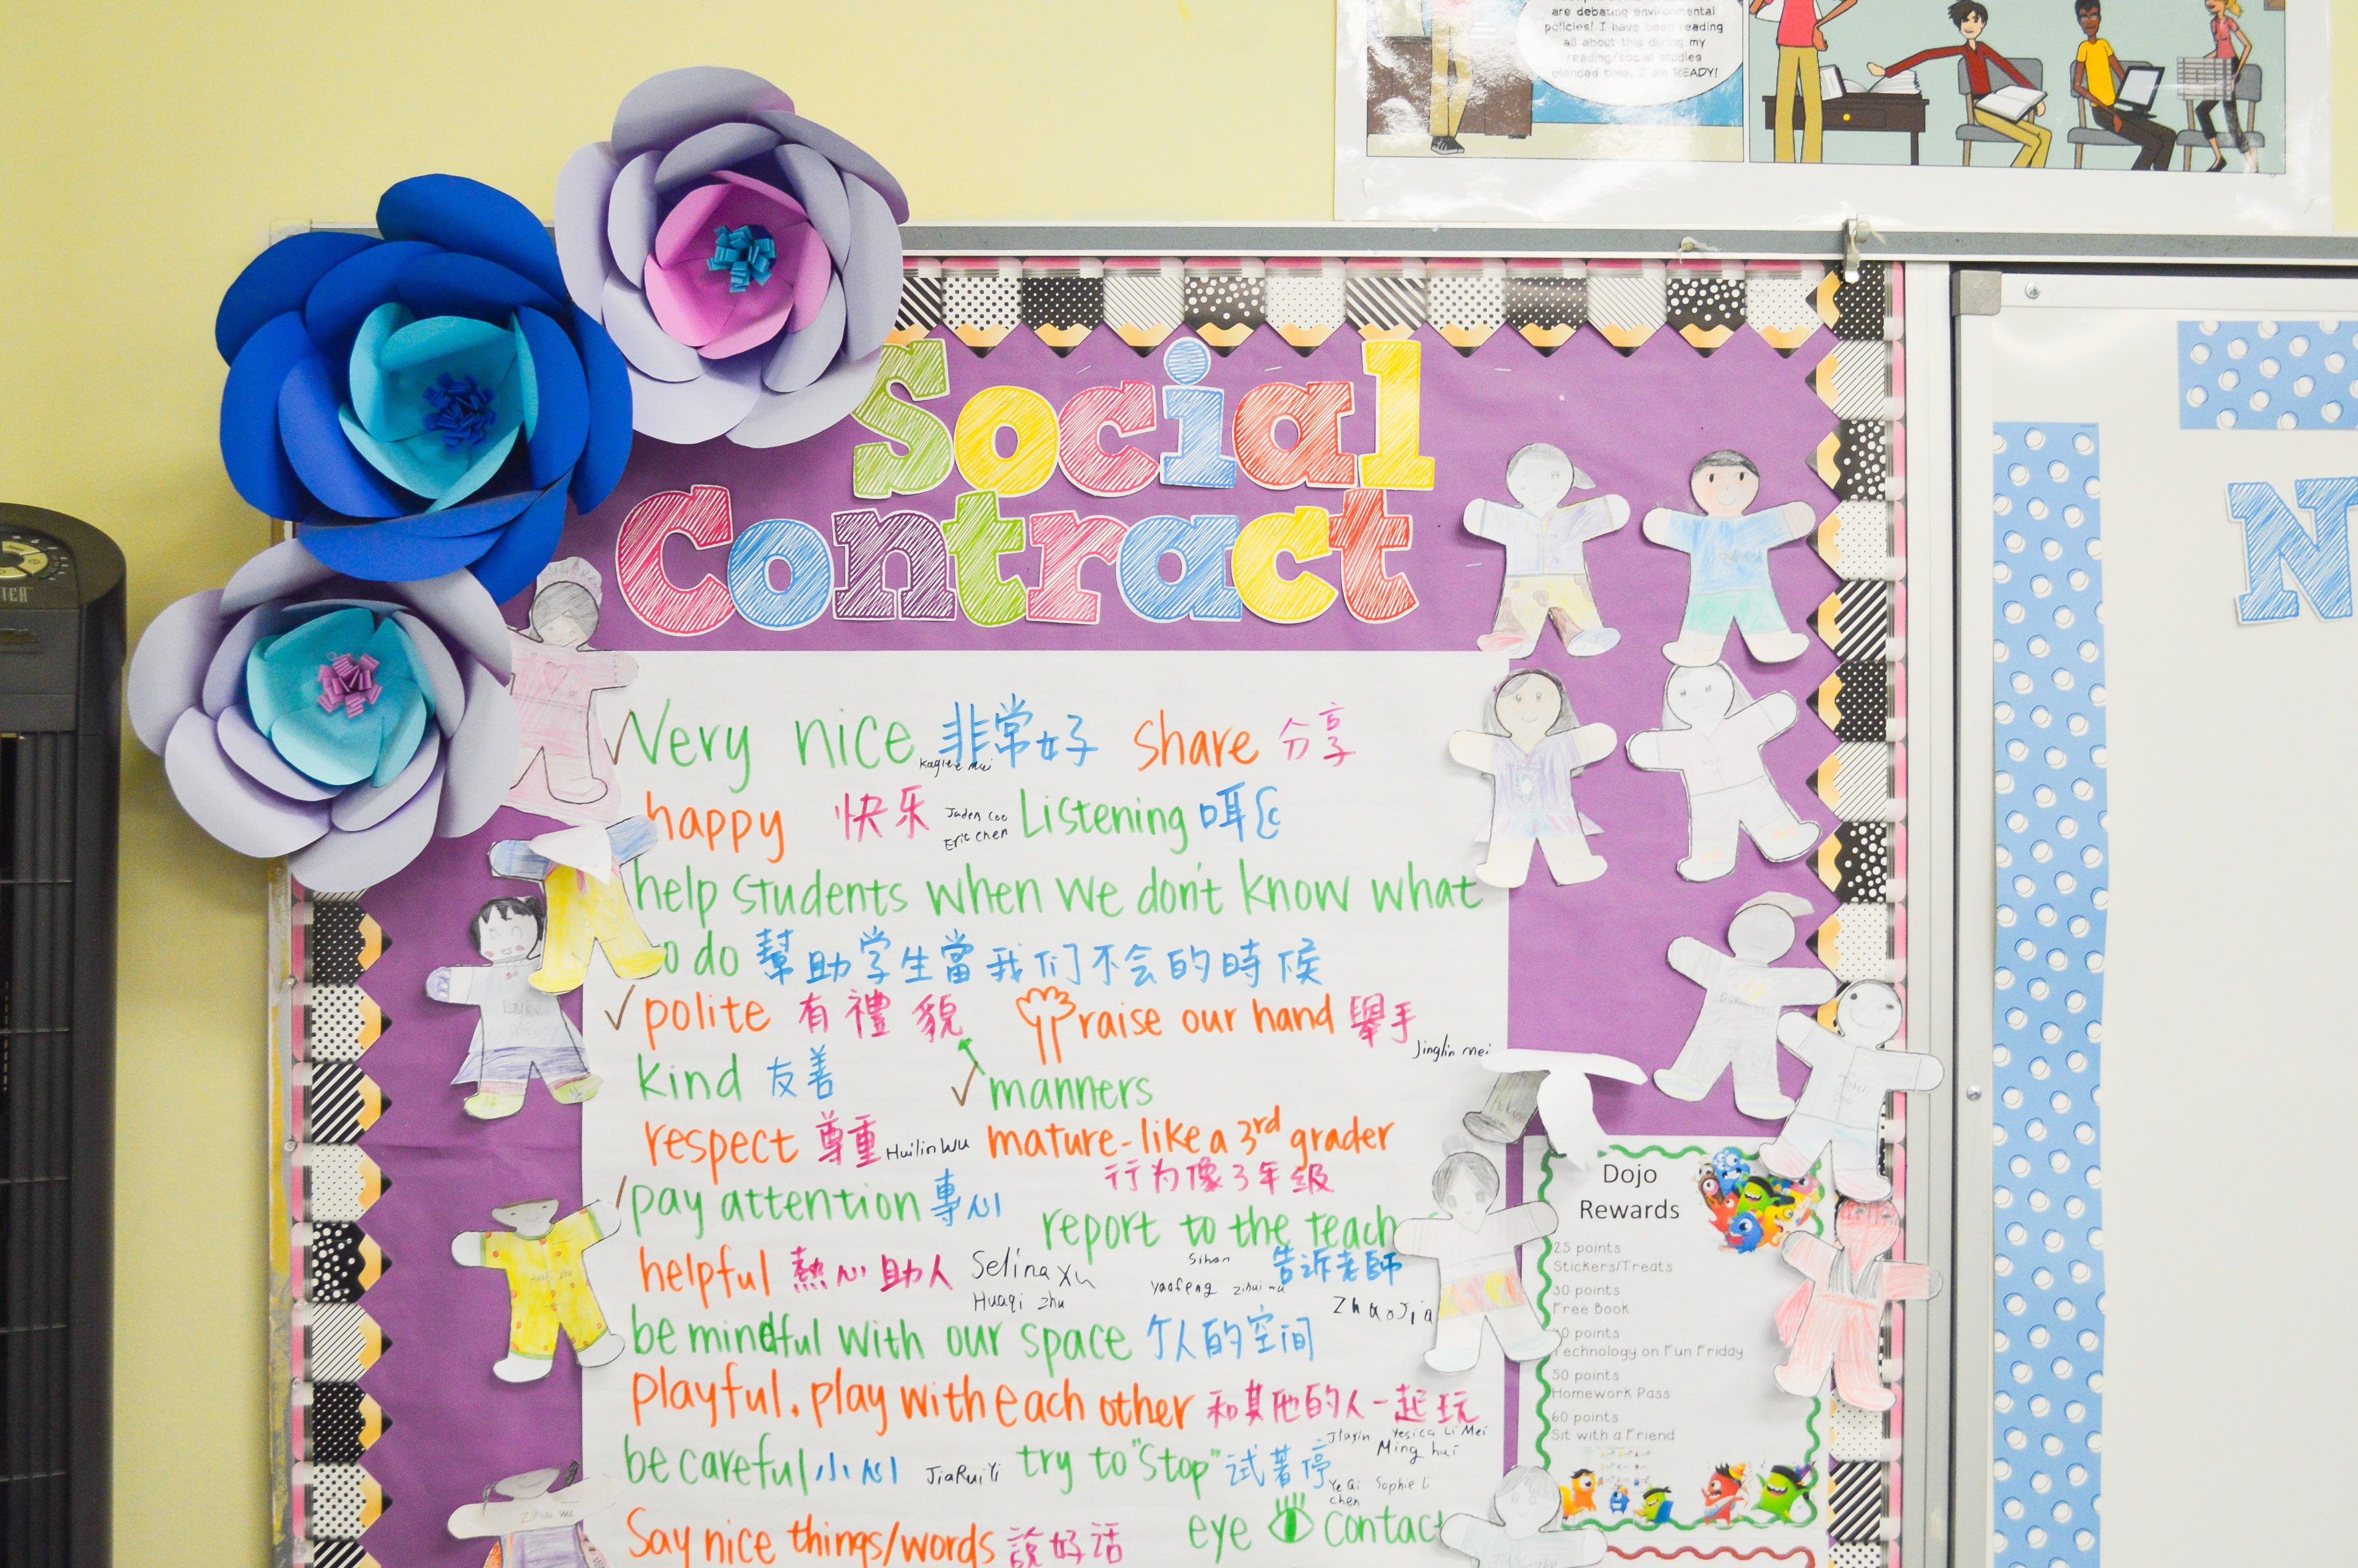 are debating environmental
policies! I have been reading
all about this during my
reading/social studies
blended time. I am READY!
Social
Contract
N
Very nice 非常好 share 分享
Kaylee Mei
happy 快乐 Jaden Cao Listening
Eric chen
help students when we don't know what
o do 幫助学生當我们不会的時候
polite 有禮貌 raise our hand 舉手
Jinglin mei
kind 友善 manners
respect 尊重 Huilin Wu mature-like a 3rd grader
行为像3年级
pay attention 專心 report to the teach
helpful 熱心助人 Selina Xu 告诉老師
Huaqi Zhu yaofeng ZhaoJia
be mindful with our space 个人的空间
Playful, play with each other 和其他的人一起玩
Jiaxin Yesica Li Mei
Ming hui
be careful 小心 JiaRuiYi try to "Stop" 试著停
Ye Qi Sophie Li
chen
Say nice things/words 說好话 eye contact
Dojo
Rewards
25 points
Stickers/Treats
30 points
Free Book
0 points
Technology on Fun Friday
50 points
Homework Pass
60 points
Sit with a Friend